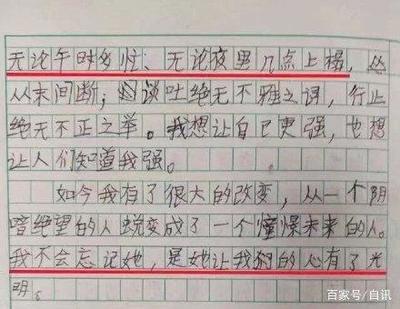 无论午时多忙、无论夜里几点上榻，总
从末间断；谈吐绝无不雅之词，行止
绝无不正之举。我想让自己更强，也想
让人们知道我强。
如今我有了很大的改变，从一个阴
暗绝望的人蜕变成了一个憧憬未来的人。
我不会忘记她，是她让我的心有了光
明。
百家号/自讯